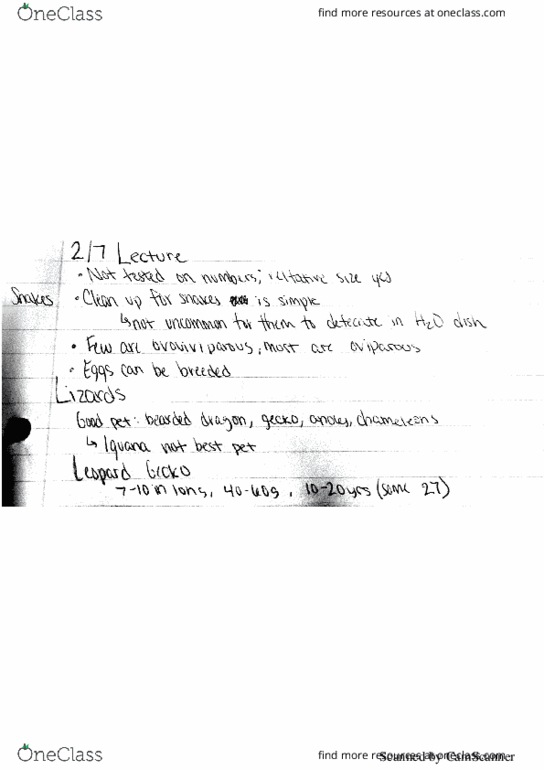 OneClass
find more resources at oneclass.com
2/7 Lecture
• Not tested on numbers, relative size yes
Snakes • Clean up for snakes is simple
↳ not uncommon for them to defecate in H2O dish
• Few are ovoviviparous, most are oviparous
• Eggs can be breeded
Lizards
Good pet: bearded dragon, gecko, anoles, chameleons
↳ Iguana not best pet
Leopard Gecko
7-10 in long, 40-60g, 10-20yrs (some 27)
OneClass
find more resources at oneclass.com
Scanned by CamScanner